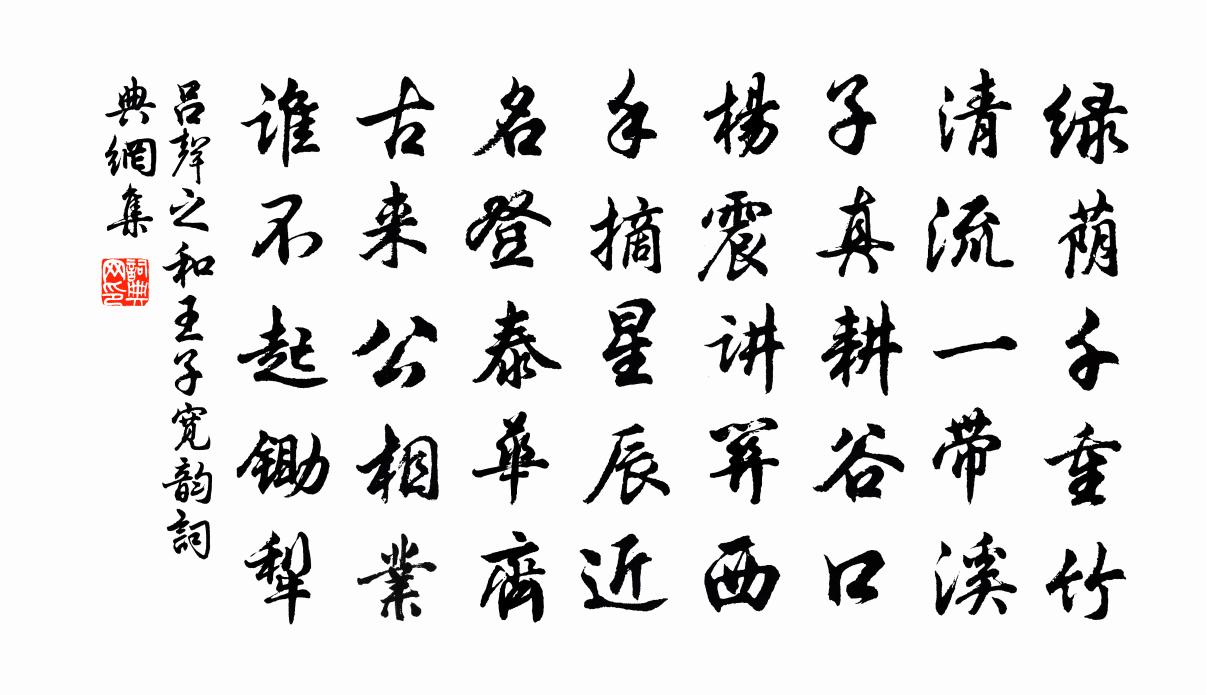 绿荫千重竹
清流一带溪
子真耕谷口
楊震讲関西
手摘星辰近
名登泰華齊
古来公相業
谁不起锄犁
吕聲之和王子寬韵詞
典網集
詞典
网印